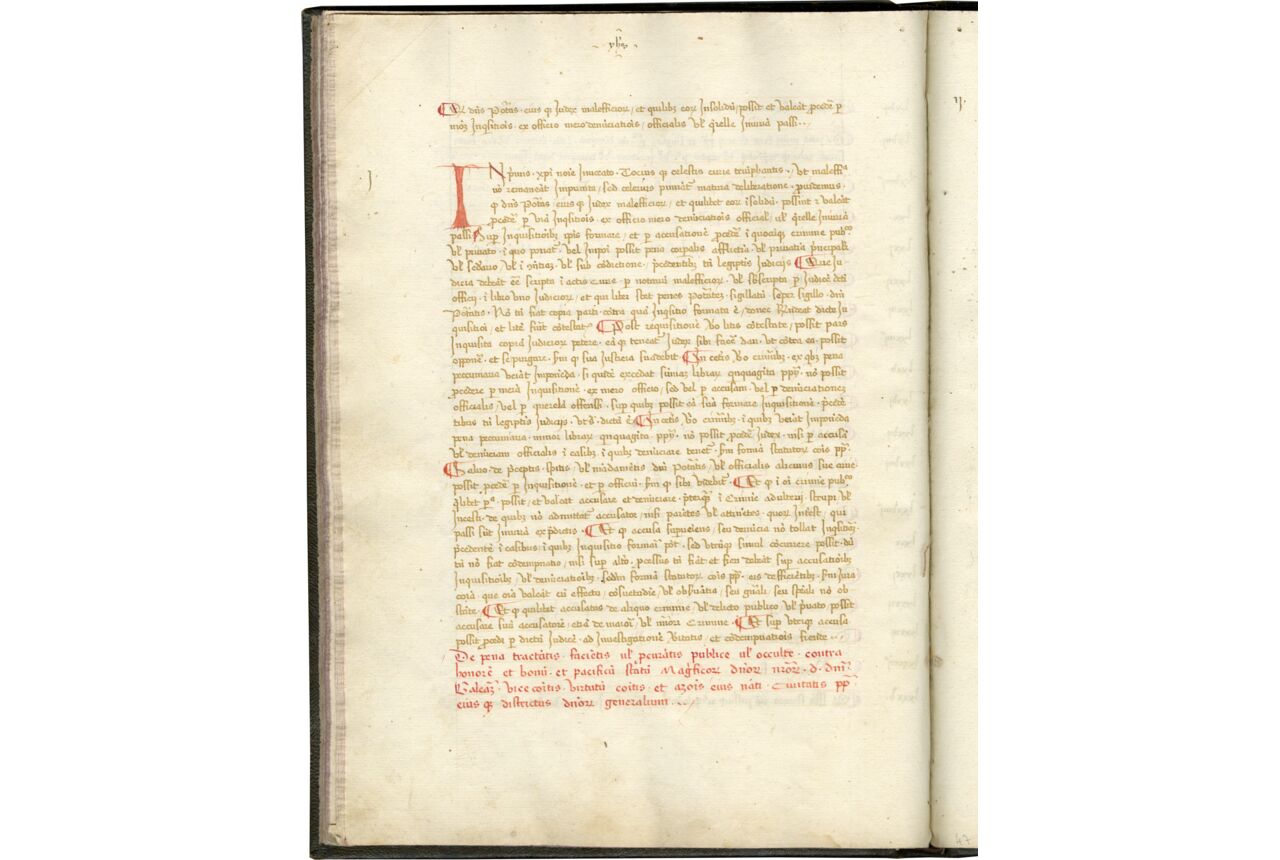 yhs
Qꝙ dn̄s Potās eius q̨ Judex malefficior̨ et quilib₃ eor̨ Insolidū possit et valeat ꝓcedẽ p
mō₃ Inq̄sitiōis ex officio mero denūciatiōis officialis vl̓ q̄relle Iniuriā passi
j
IN p̄mis xp̄i noīe Inuocato Tocius q̨ celestis curie triūphantis Vt maleffi
nō remaneāt Impunita sed celerius puniāt᷑ matura deliberatione ꝓuidemus
ꝙ dn̄s Potās eius q̨ Judex malefficior̨ et quilibet eor̨ īsolidū possint ⁊ valeāt
ꝓcedẽ p viā Inq̄sitiōis ex officio mero denūciatiōis official̓ vl̓ q̄relle Iniuriā
passi Sup̱ Inquisitiōib₃ ip̄is formare et p accusationē ꝓcedẽ ī quocūq̨ crimine pub^co
vl̓ priuato ī quo ponat᷑ vel Inponi possit pena corpalis afflictiā vl̓ priuatiā p̄ncipali
vl̓ vl̓ vl̓ sub cōdictione p̄cedentib₃ tn̄ legiptis Judicijs Que In
dicia debeāt eē scripta ī actis curie p notariū malefficior̨ vl̓ sb̄scripta p Judicē dc̄i
officij ī libro vno Judicior̨ et qui liber stet penes Potātez sigillatū semper sigillo dn̄i
Potātis Nō tn̄ fiat copia parti cōtra quā Inq̄sitio formata ē donec R̄ndeat dicte In
quisitiōi et litē fūit cōtestat᷑ Post requisitionē Vō litis cōtestate possit pars
Inquisita copiā Judicior̨ petere eā q̨ teneat᷑ Judex sibi facẽ dari ut cōtra ea possit
opponẽ et se purgare sm̄ ꝙ sua Justicia suadebit In cetīs Vō crim̄ib₃ ex qb₃ pena
pecuniaria veiāt Inponēda si quidē excedat sūmaz librar̨ qnquagīta ppȳ nō possit
ꝓcedere p merā Inquisitionē ex mero officio sed vel p accusam vel p denūciationez
officialis vel p querelā offensi sup̱ quib₃ possit eā suā formare Inquisitionē p̄cedē
tibus tn̄ legiptis Judicijs vt s̄ dictū ē In cetīs Vō crim̄ib₃ ī quib₃ veiāt Inponēda
pena pecuniaria minor librar̨ qnquagīta ppȳ nō possit ꝓcedẽ Judex nisi p accusā
vl̓ denūciam officialis ī casib₃ ī quib₃ denūciare tenet᷑ sm̄ formā statutor̨ cōis pp̄
Saluo de p̄ceptis spretis vl̓ mādamentis dn̄i Potātis vl̓ officialis alicuius siue curie
possit ꝓcedẽ p Inquisitionē et p officiū sm̄ ꝙ sibi videbit᷑ Et ꝙ ī oī crimine pub^co
q̄libet p^a possit et valeat accusare et denūciare p̄terq̄₃ ī Crimīe adulterij strupi vl̓
Incesti de quib₃ nō admittat᷑ accusator nisi parētes vl̓ attinētes quor̨ Interest qui
passi sūt Iniuriā ex p̄dictis Et ꝙ accusa supueiens seu denūcia nō tollat Inq̄sitiō₃
p̄cedentē ī casibus ī quib₃ Inquisitio formari pōt sed vtrūq̨ simul cōcurrere possit dū
tn̄ nō fiat cōdempnatio nisi sup̱ alt̓o ꝓcessus tn̄ fiāt et fieri debeāt sup̱ accusatiōib₃
Inquisitiōib₃ vl̓ denūciatiōib₃ Secdm̄ formā statutor̨ cōis pp̄ eis defficiētib₃ sm̄ Jura
coīa que oīa valeāt cū effectu cōsuetudīe vl̓ obs̓uātia seu gn̄ali seu sp̄eali nō ob
stāte Et ꝙ quilibet accusatus de aliquo crimīe vl̓ delicto publico vl̓ p̄uato possit
accusare suū accusatorē etiā de maiori vl̓ mīori Crimīne Et sup̱ vtriq̨ accusa
possit ꝓcedi p dictū Judicē ad Inuestigationē Vitatis et cōdempnatiōis fiende
De pena tractātis faciētis vl̓ ꝓcurātis publice vl̓ occulte contra
honorē et bonū et pacificū statū Magˢficor̨ dn̄or̨ nr̄or̨ d. dn̄i
Galeaz̄ vice cōitis virtutū cōitis et azois eius nāti Ciuitatis pp̄
eius q̨ districtus dn̄or̨ generalium
ij.
47